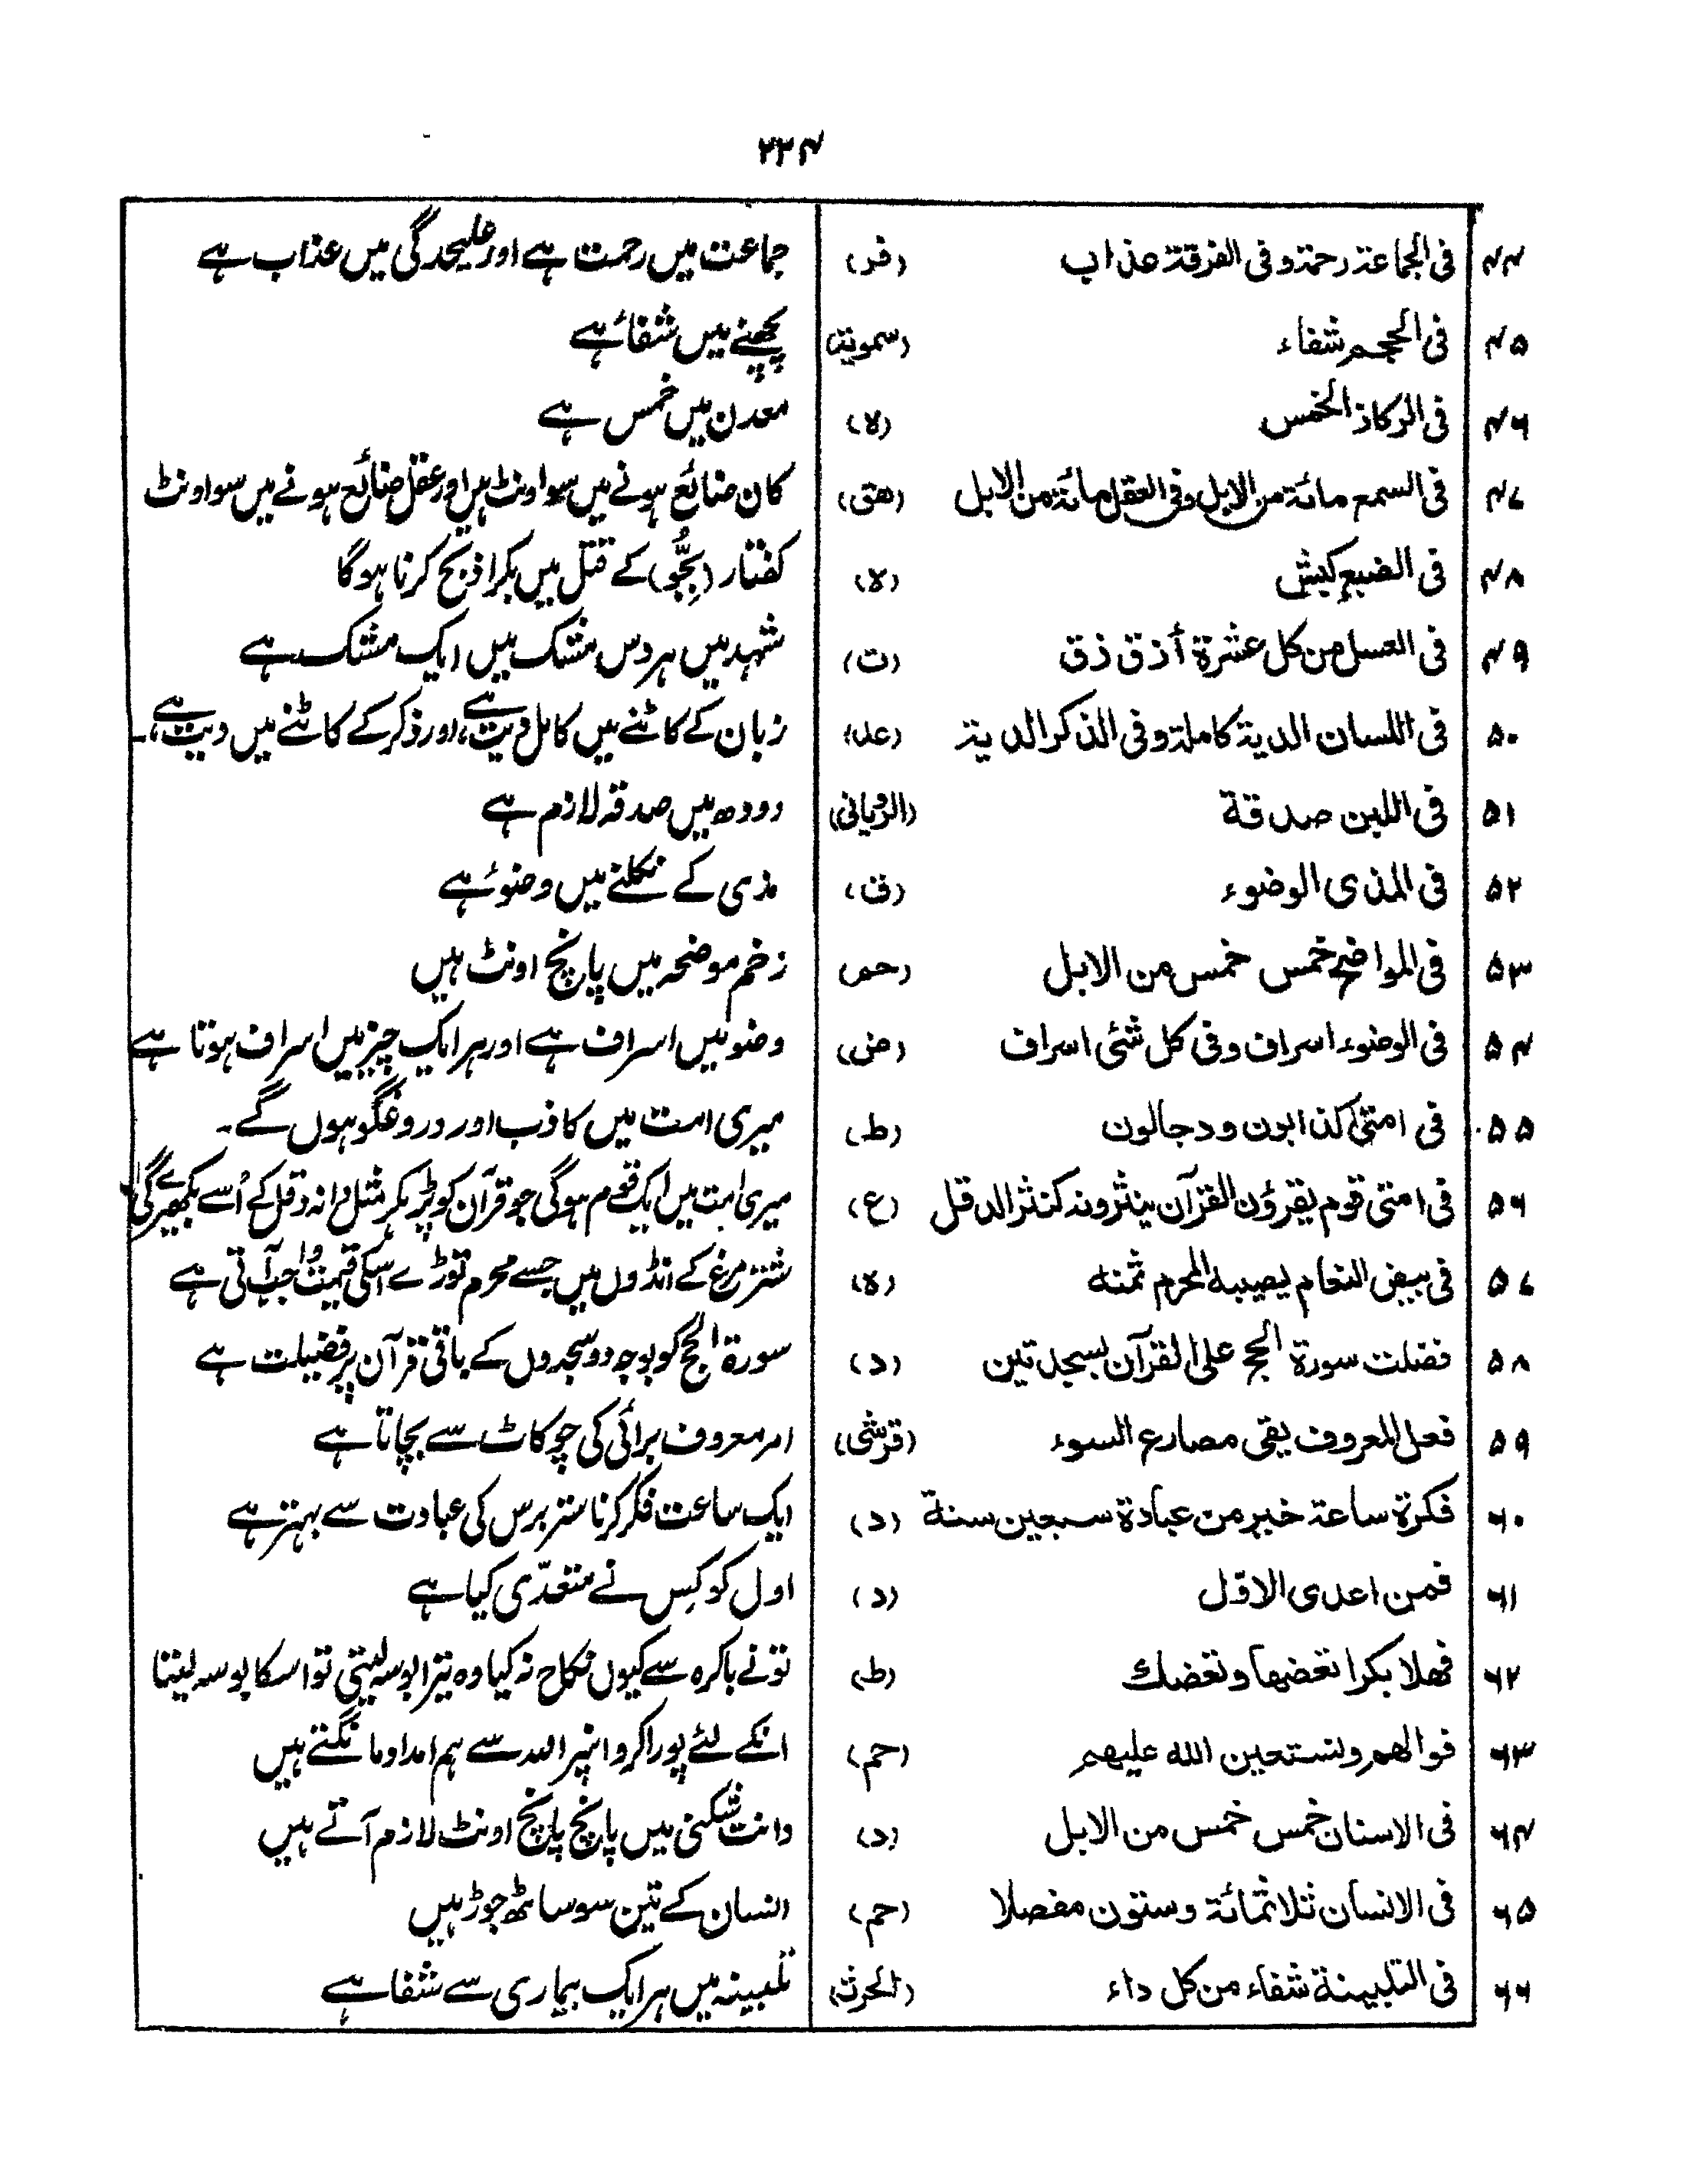 ۲۲۴
۴۴ فی الجماعۃ رحمۃ وفی الفرقۃ عذاب (فر) جماعت میں رحمت ہے اور علیحدگی میں عذاب ہے
۴۵ فی الحجم شفاء (سمویۃ) پچھنے میں شفاء ہے
۴۶ فی الرکاز الخمس (لا) معدن میں خمس ہے
۴۷ فی السمع مائۃ من الابل وفی العقل مائۃ من الابل (ھق) کان ضائع ہونے میں سو اونٹ ہیں اور عقل ضائع ہونے میں سو اونٹ
۴۸ فی الضبع کبش (لا) کفتار (بِجُّو) کے قتل میں بکرا ذبح کرنا ہوگا
۴۹ فی العسل من کل عشرۃ أزق زق (ت) شہد میں ہر دس مشک میں ایک مشک ہے
۵۰ فی اللسان الدیۃ کاملۃ وفی الذکر الدیۃ (عد) زبان کے کاٹنے میں کامل دیت ہے، اور ذکر کے کاٹنے میں دیت ہے،۔
۵۱ فی اللبن صدقۃ (الرویانی) دودھ میں صدقہ لازم ہے
۵۲ فی المذی الوضوء (ق) مذی کے نکلنے میں وضوء ہے
۵۳ فی المواضح خمس خمس من الابل (حم) زخم موضحہ میں پانچ اونٹ ہیں
۵۴ فی الوضوء اسراف وفی کل شئی اسراف (ض) وضو میں اسراف ہے اور ہر ایک چیز میں اسراف ہوتا ہے
۵۵ فی امتی کذابون ودجالون (ط) میری امت میں کاذب اور دروغگو ہوں گے۔
۵۶ فی امتی قوم یقرؤن القرآن ینثرونہ کنثر الدقل (ع) میری امت میں ایک قوم ہوگی جو قرآن کو پڑہکر مثل دانہ دقل کے اُسے بکھیرے گی
۵۷ فی بیض النعام یصیبہ المحرم ثمنہ (لا) شتر مرغ کے انڈوں میں جسے محرم توڑے اُسکی قیمت واجب آتی ہے
۵۸ فضلت سورۃ الحج علی القرآن بسجدتین (د) سورۃ الحج کو بوجہ دو سجدوں کے باقی قرآن پر فضیلت ہے
۵۹ فعل المعروف یقی مصارع السوء (قرشی) امر معروف برائی کی چوکاٹ سے بچاتا ہے
۶۰ فکرۃ ساعۃ خیر من عبادۃ سبعین سنۃ (د) ایک ساعت فکر کرنا ستر برس کی عبادت سے بہتر ہے
۶۱ فمن اعدی الاوّل (د) اول کو کس نے متعدّی کیا ہے
۶۲ فھلا بکرا تعضھا وتعضک (ط) تو نے باکرہ سے کیوں نکاح نہ کیا وہ تیرا بوسہ لیتی تو اسکا بوسہ لیتا
۶۳ فوالھم ونستعین اللہ علیھم (حم) انکے لئے پورا کرو انپر اللہ سے ہم امداد مانگتے ہیں
۶۴ فی الاسنان خمس خمس من الابل (د) دانت شکنی میں پانچ پانچ اونٹ لازم آتے ہیں
۶۵ فی الانسان ثلاثمائۃ وستون مفصلا (حم) انسان کے تین سو ساٹھ جوڑ ہیں
۶۶ فی التلبینۃ شفاء من کل داء (الحرث) تلبینہ میں ہر ایک بیماری سے شفا ہے